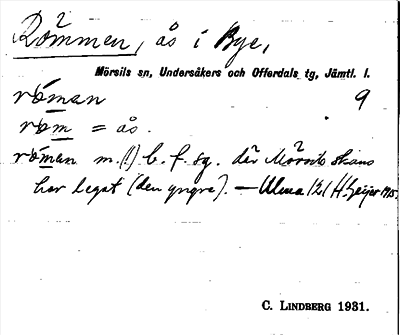 Römmen, ås i Bye,
Mörsils sn, Undersåkers och Offerdals tg, Jämtl. l.
róman 9
rom = ås.
róman m.(!) b. f. sg. där Mörsils skans
har legat (den yngre). — Ulma 121 H. Geijer 1915.
C. LINDBERG 1931.